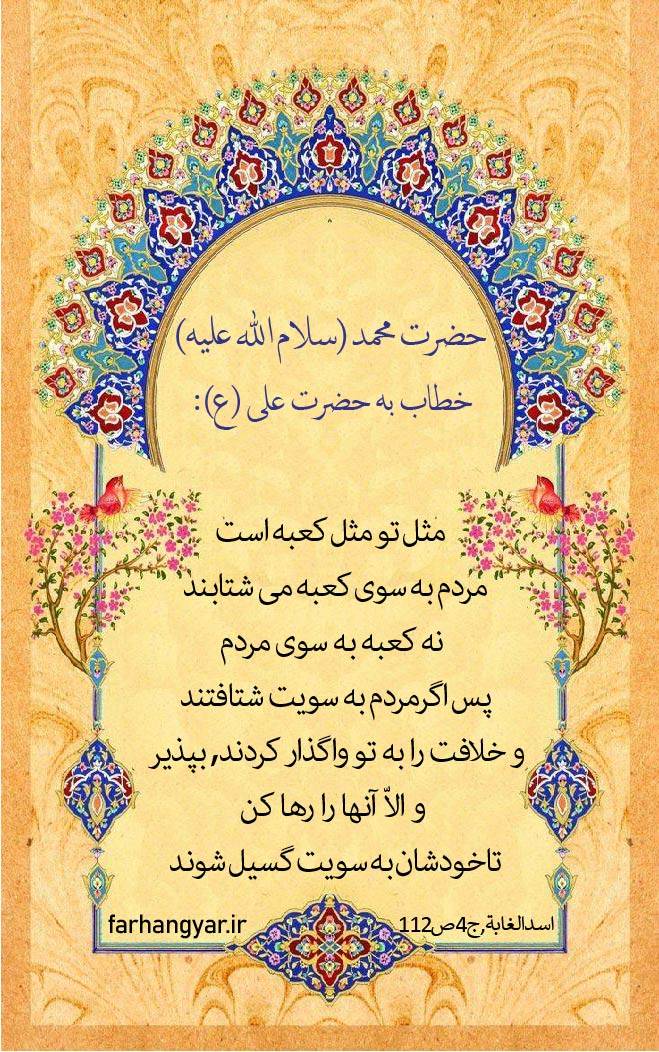 حضرت محمد (سلام الله علیه)
خطاب به حضرت علی (ع):
مثل تو مثل کعبه است
مردم به سوی کعبه می شتابند
نه کعبه به سوی مردم
پس اگر مردم به سویت شتافتند
و خلافت را به تو واگذار کردند, بپذیر
و الاّ آنها را رها کن
تا خودشان به سویت گسیل شوند
اسدالغابة,ج4ص112
farhangyar.ir